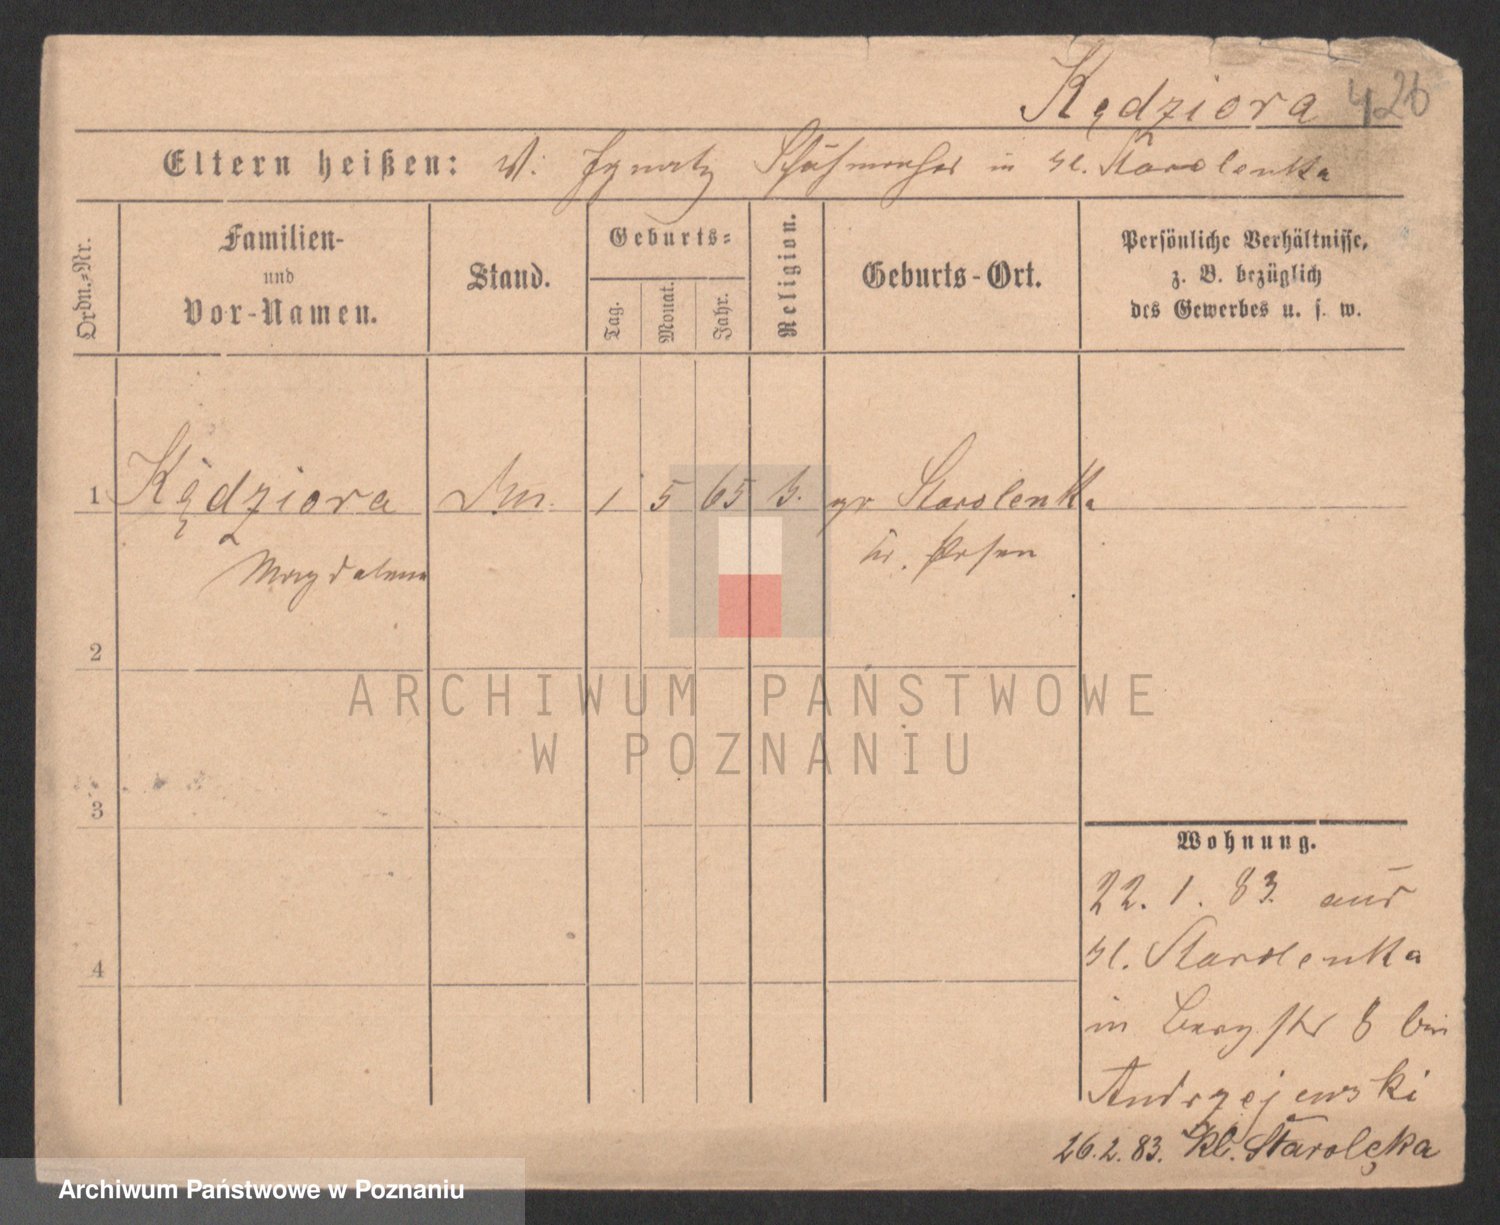 Kędziora 426
Eltern heißen: V: Ignatz Schuhmacher in Kl. Starolenka
Ordn.-Nr.
Familien-
und
Vor-Namen.
Stand.
Geburts-
Tag.
Monat.
Jahr.
Religion.
Geburts-Ort.
Persönliche Verhältnisse,
z. B. bezüglich
des Gewerbes u. s. w.
1 Kędziora 1 5 65 gr Starolenka
Magdalena Kr. Posen
2
3
4
Wohnung.
22. 1. 83 aus
Kl. Starolenka
in Bergstr 8 bei
Andrzejewski
26.2.83. Kl. Starolęka
ARCHIWUM PAŃSTWOWE
W POZNANIU
Archiwum Państwowe w Poznaniu